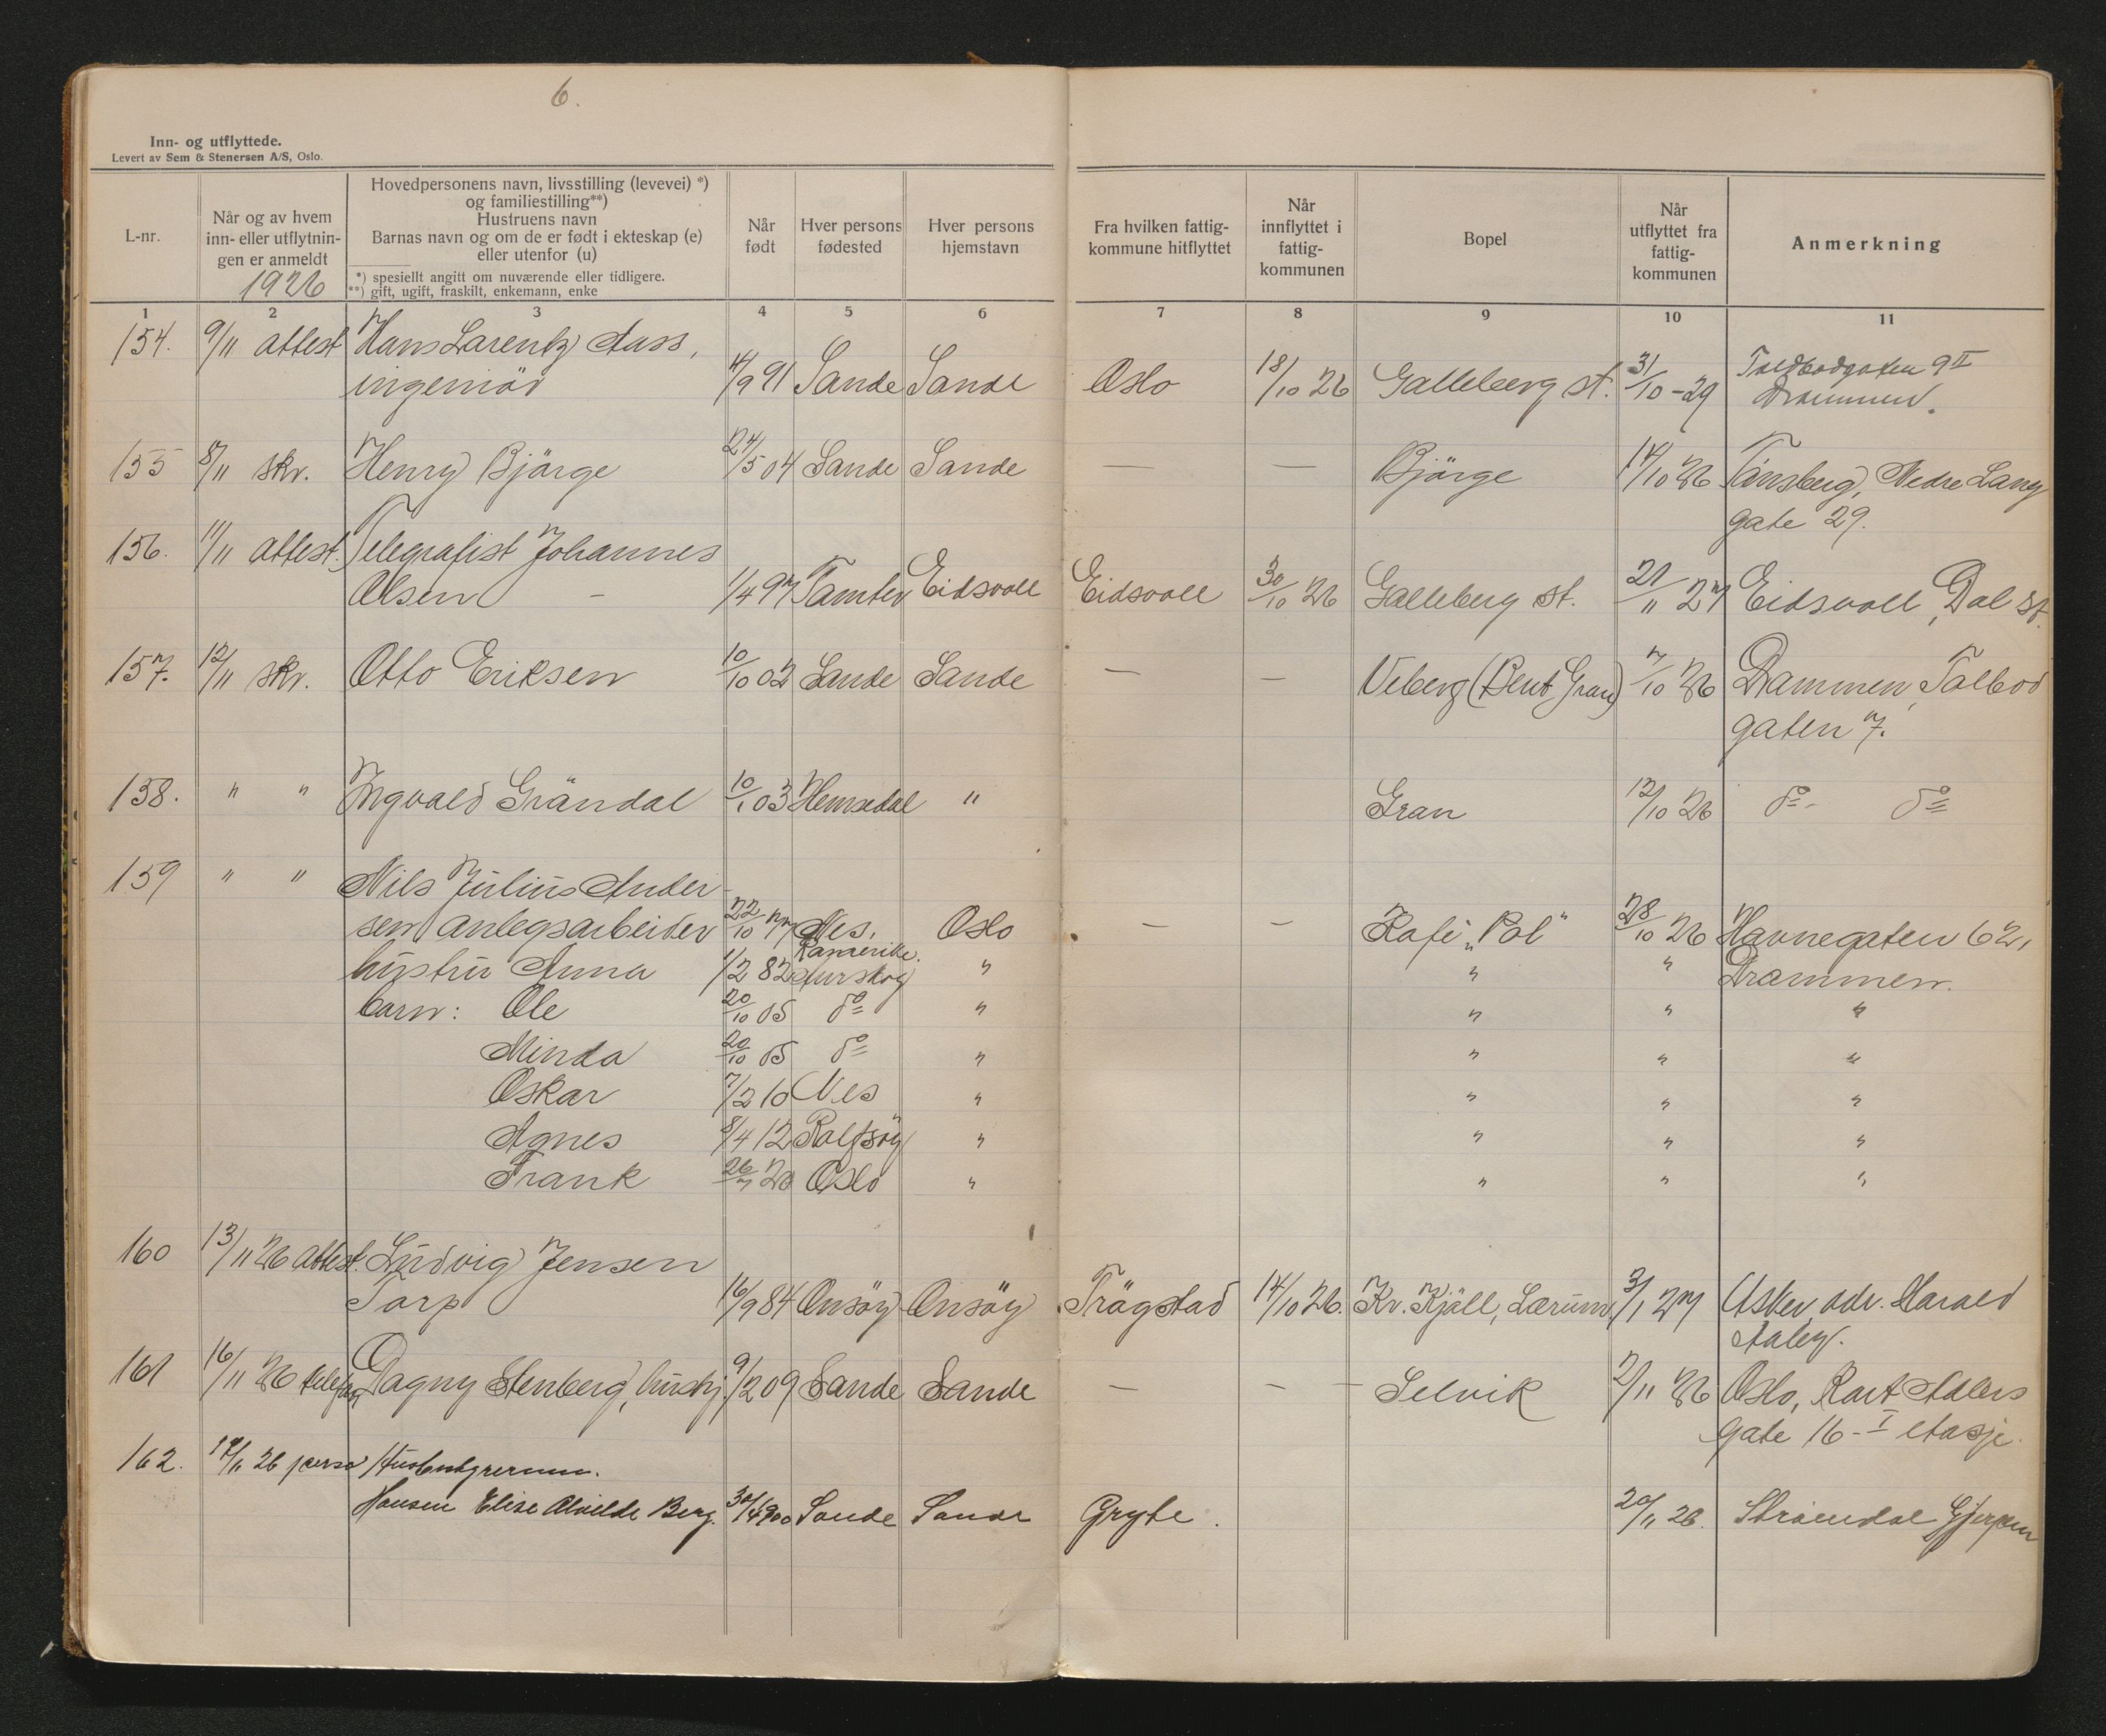 6.
Inn- og utflyttede.
Levert av Sem & Stenersen A/S, Oslo.
L-nr.
Når og av hvem
inn- eller utflytnin-
gen er anmeldt
1926
Hovedpersonens navn, livsstilling (levevei) *)
og familiestilling**)
Hustruens navn
Barnas navn og om de er født i ekteskap (e)
eller utenfor (u)
*) spesiellt angitt om nuværende eller tidligere.
**) gift, ugift, fraskilt, enkemann, enke
Når
født
Hver persons
fødested
Hver persons
hjemstavn
Fra hvilken fattig-
kommune hitflyttet
Når
innflyttet i
fattig-
kommunen
Bopel
Når
utflyttet fra
fattig-
kommunen
Anmerkning
1 2 3 4 5 6 7 8 9 10 11
154. 9/11 attest Hans Larentz Aass,
ingeniör 4/9 91 Sande Sande Oslo 18/10 26 Galleberg st. 31/10-29 Toldbodgaten 9 II
Drammen.
155 8/11 skr. Henry Bjärge 24/5 04 Sande Sande — — Bjärge 14/10 26 Tönsberg, Nedre Lang
gate 29.
156. 11/11 attest. Telegrafist Johannes
Olsen - 1/4 97 Eidsvoll Eidsvoll 30/10 26 Galleberg st. 21/11 27 Eidsvoll, Dal st.
157. 12/11 skr. Otto Eriksen 10/10 02 Sande Sande — — Veberg (Bent Gran) 7/10 26 Drammen, Tolbod
gaten 7.
158. " " Ingvald Gröndal 10/1 03 Hemsedal " Gran 12/10 26 do - do
159 " " Nils Julius Ander
sen anlegsarbeider 22/10 77 Nes, Oslo — — Kafe "Pol" 28/10 26 Havnegaten 62,
Romerike.
hustru Anna 1/2 82 Aurskog " " " Drammen.
barn: Ole 20/10 05 do " " " "
Minda 20/10 05 do " " " "
Oskar 7/2 10 Nes " " " "
Agnes 8/4 12 Rolfsöy " " " "
Frank 26/7 20 Oslo " " " "
160 13/11 26 attest. Ludvig Jensen
Torp 16/9 84 Onsöy Onsöy Trögstad 14/10 26. Kr. Kjäll, Lærum. 3/1 27 Asker, adr. Harald
Aaby.
161 16/11 26 Dagny Stenberg, hushj 9/2 09 Sande Sande — — — Selvik 2/11 26 Oslo, Kort Adlers
gate 16 - I etasje.
162. 19/11 26
Hansen Elise Alvilde Berg. 30/4 900 Sande Sande Gryte. 20/11 26. Gjerpen